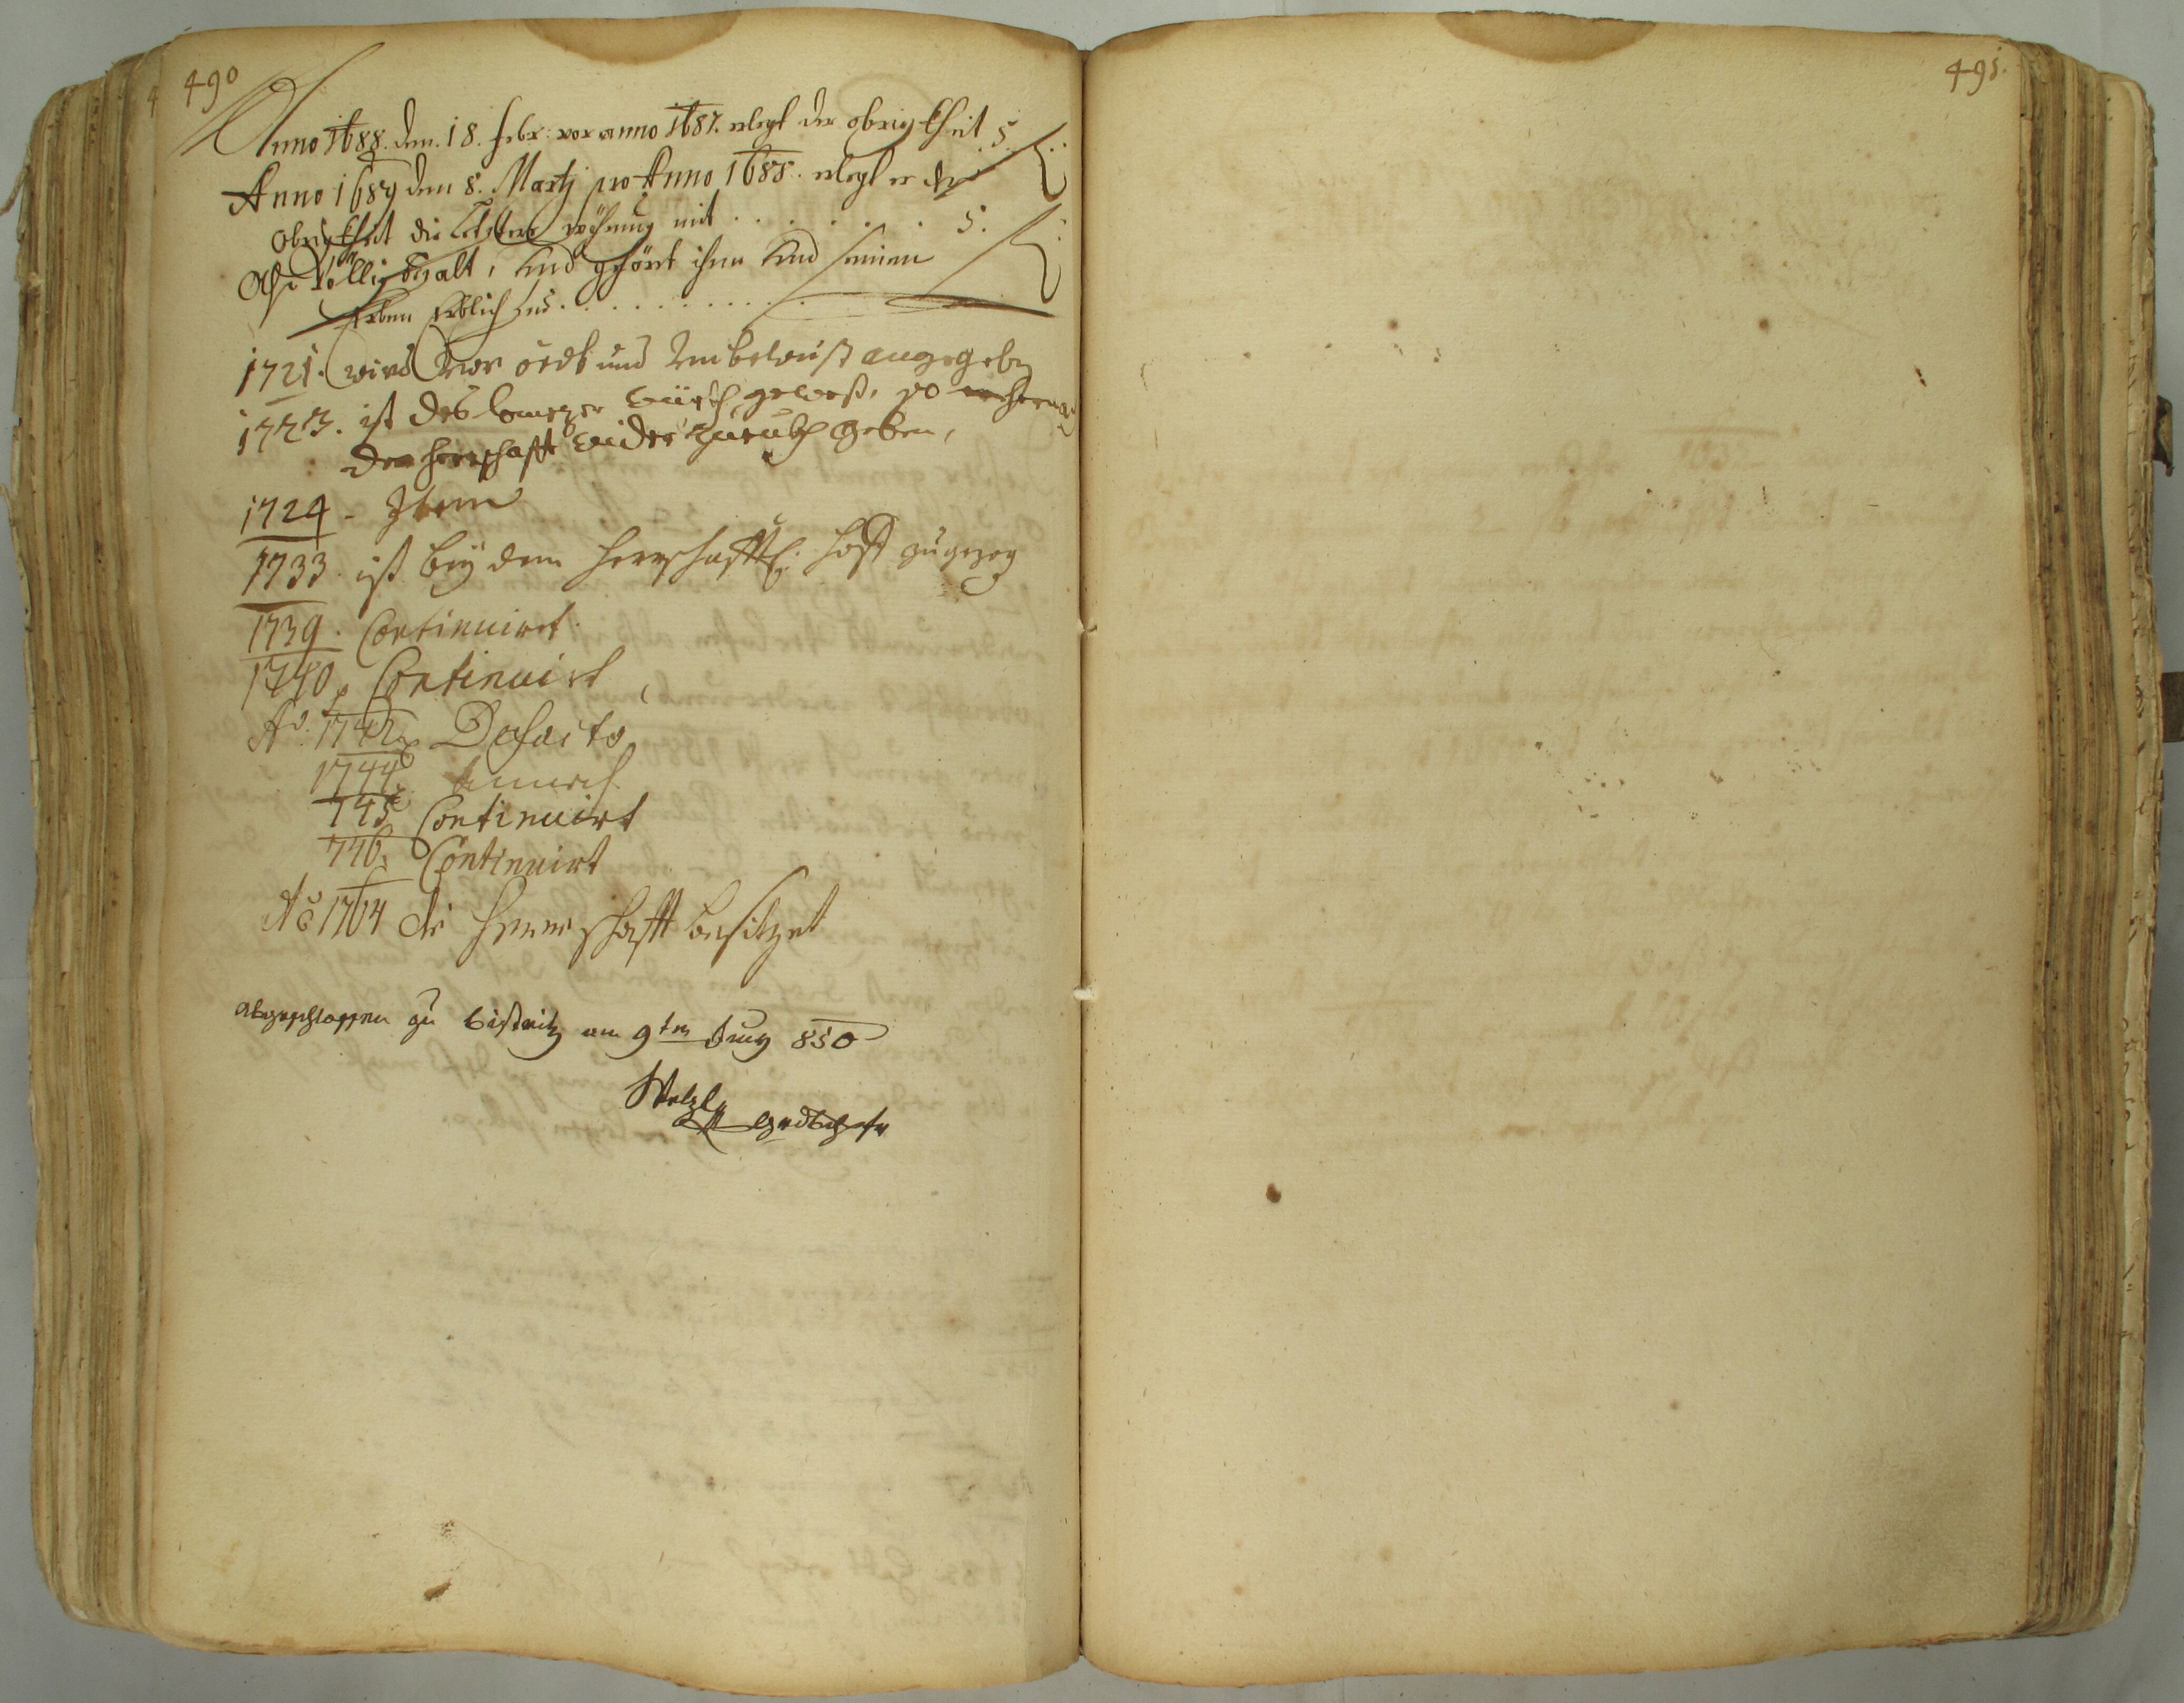 490
Anno 1688. den. 18. Febr: vor anno 1687. erlegt der obrigkheit 5.
Anno 1689 den 8. Martij pro Anno 1688. erlegt er der
obrigkheit die letztere wöhrung mit . . . . . . . 5.
Also völlig bezalt, und gehört ihm und seinen
Erben Erblich zue. . . . . . . . .
1721. wird vor ördt und angegeben
1723. ist des gewest, so
der herrschafft wider zuruckh geben,
1724 - Item
1733. ist bey dem herrschafftl: hoff zugezog
1739. Continuiret.
1740, Continuirt,
Ao. 1742 Defacto
1744
745 Continuirt
746, Continuirt
Ao 1764 die Herrschafft besitzet
abgeschlossen zu Bistritz am 9ten Juny 850
Welzl
491.